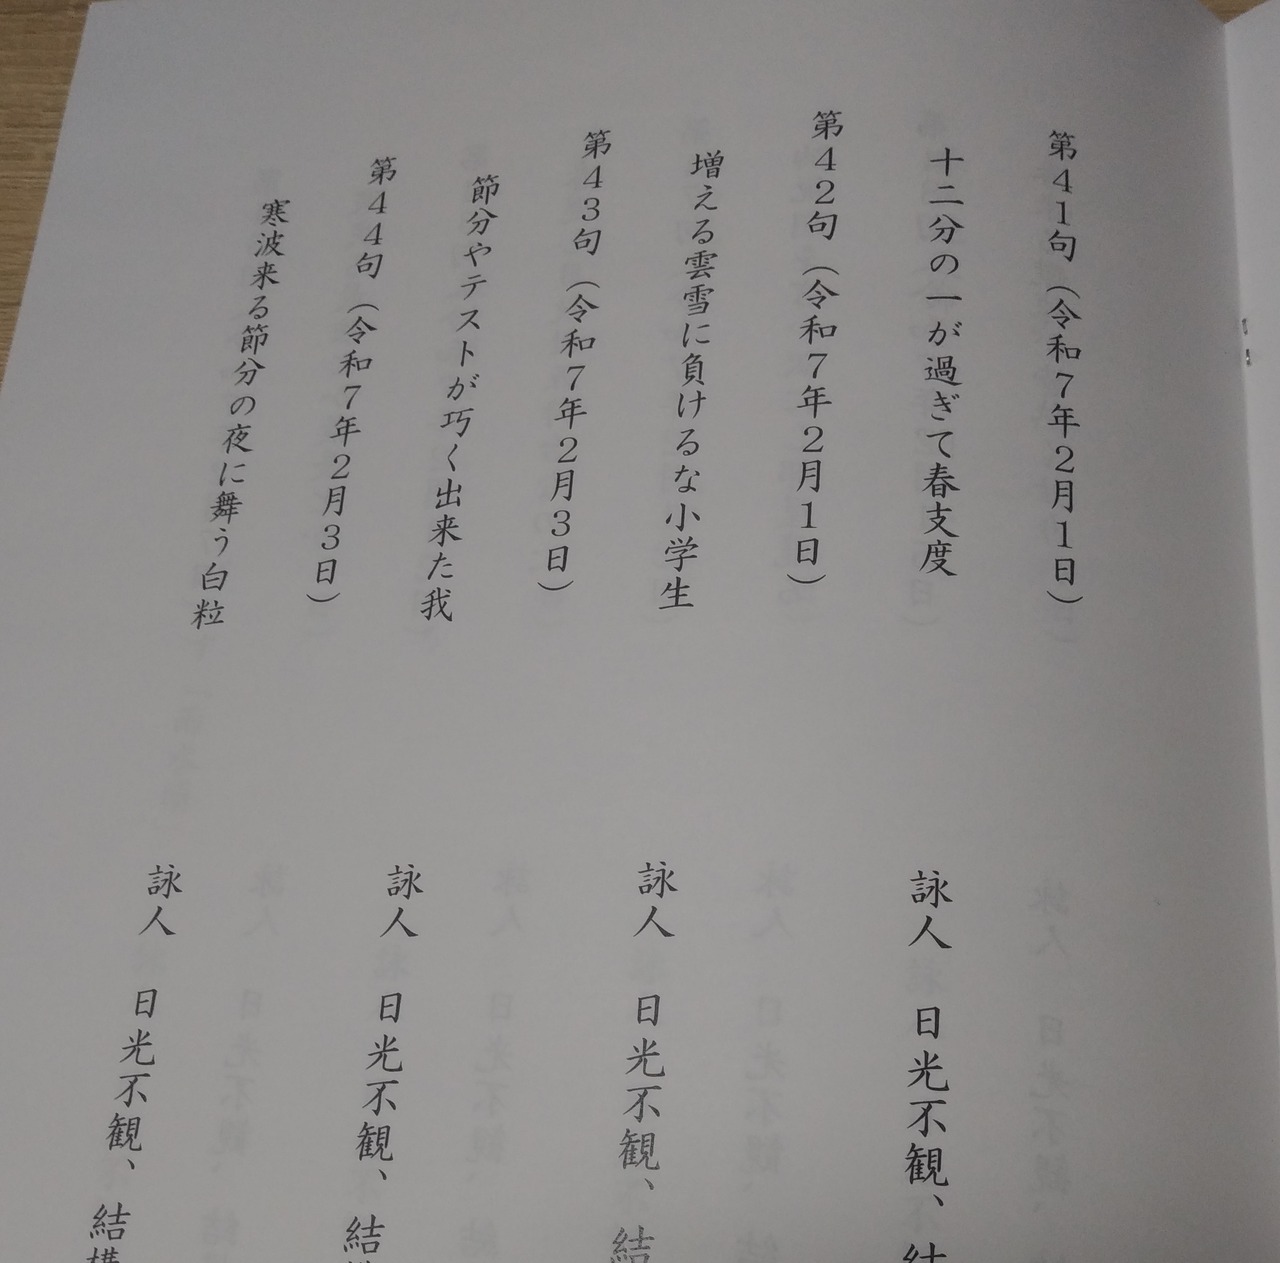 第４１句（令和７年２月１日）
十二分の一が過ぎて春支度
詠人　日光不観、結
第４２句（令和７年２月１日）
増える雲雪に負けるな小学生
詠人　日光不観、結
第４３句（令和７年２月３日）
節分やテストが巧く出来た我
詠人　日光不観、結構
第４４句（令和７年２月３日）
寒波来る節分の夜に舞う白粒
詠人　日光不観、結構